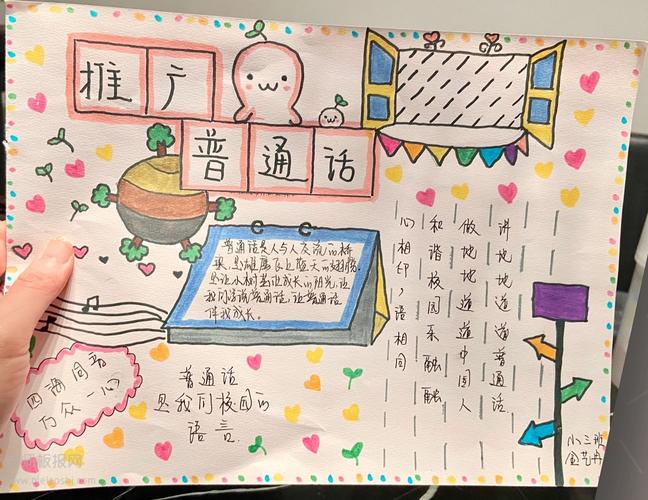 推广
普通话
普通话是人与人交流的桥
梁,是雄鹰飞上蓝天的翅膀,
是让小树茁壮成长的阳光,让
我们齐说普通话,让普通话
伴我成长。
讲地地道道普通话.
做地地道道中国人
和谐校园乐融融
心相印,语相同
四海同音
万众一心
普通话
是我们校园的
语言.
小三班
板报网